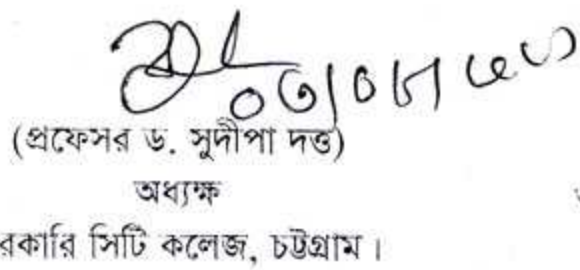 (প্রফেসর ড. সুদীপা দত্ত)
অধ্যক্ষ
রকারি সিটি কলেজ, চট্টগ্রাম।